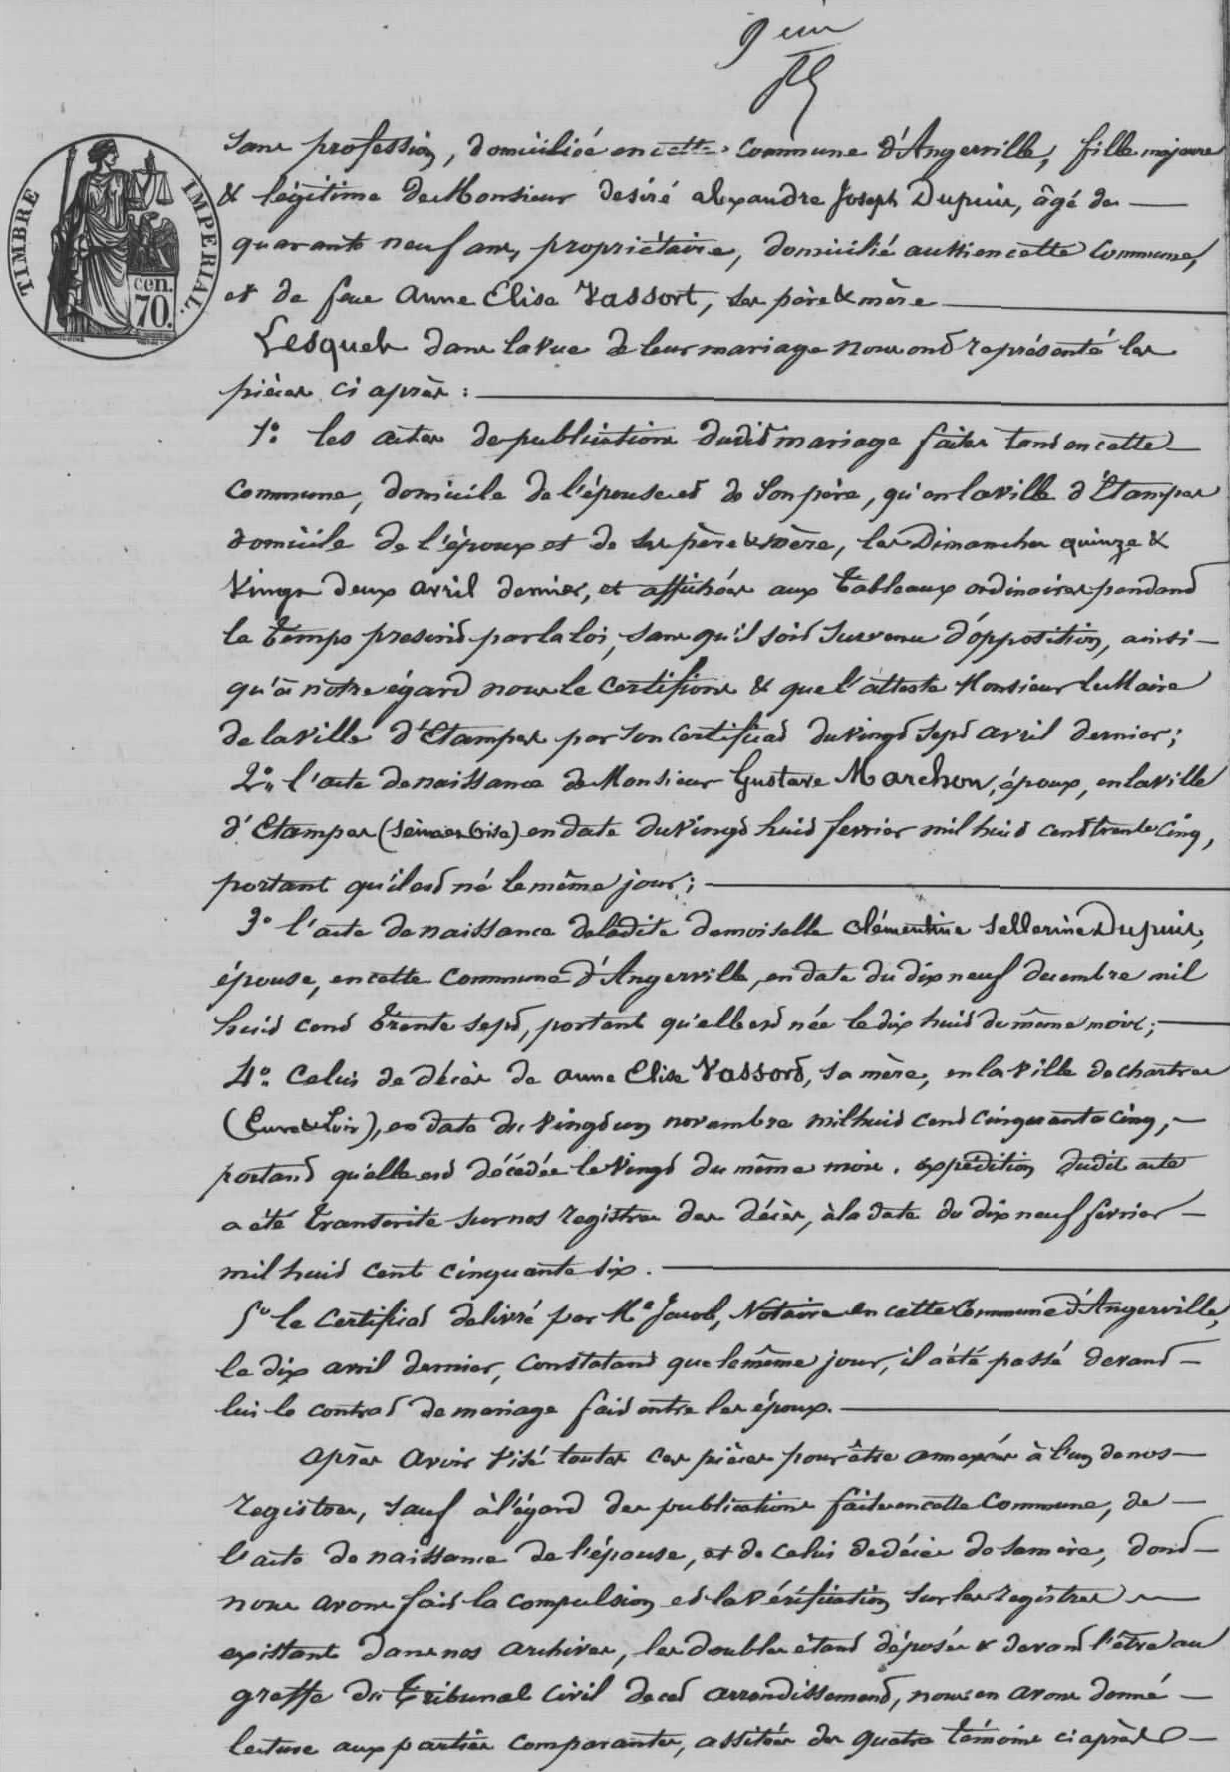 9 em
TIMBRE IMPERIAL.
cen.
70.
sans profession, domiciliée en cette commune d'Angerville, fille majeure
& légitime de Monsieur désiré alexandre Joseph Dupuis, âgé de —
quarante neuf ans, propriétaire, domicilié aussi en cette Commune,
et de feue Anne Elisa Vassort, ses père & mère —
Lesquels dans la vue de leur mariage nous ont représenté les
pièces ci après : —
1º les actes de publications dudit mariage faites tant en cette —
Commune, domicile de l'épouse et de son père, qu'en la ville d'Étampes
domicile de l'époux et de ses père & mère, les Dimanches quinze &
vingt deux avril dernier, et affichées aux tableaux ordinaires pendant
le temps prescrit par la loi, sans qu'il soit survenu d'opposition, ainsi —
qu'à notre égard nous le certifions & que l'atteste Monsieur le Maire
de la ville d'Etampes par son certificat du vingt sept avril dernier ;
2º l'acte de naissance de Monsieur Gustave Marchon, époux, en la ville
d'Etampes (Seine et Oise) en date du vingt huit fevrier mil huit cent trente cinq,
portant qu'il est né le même jour ; —
3º l'acte de naissance de ladite demoiselle Clémentine Sellerine Dupuis,
épouse, en cette Commune d'Angerville, en date du dix neuf decembre mil
huit cent trente sept, portant qu'elle est née le dix huit du même mois ; —
4º Celui de décès de anne Elisa Vassort, sa mère, en la ville de chartres
(Eure & Loir), en date du vingt un novembre mil huit cent cinquante cinq, —
portant qu'elle est décédée le vingt du même mois. expédition dudit acte
a été transcrite sur nos registres des décès, à la date du dix neuf fevrier —
mil huit cent cinquante six. —
5º le Certificat delivré par Me Jacob, Notaire en cette Commune d'Angerville,
le dix avril dernier, constatant que le même jour, il a été passé devant —
lui le contrat de mariage fait entre les époux. —
après avoir visé toutes ces pièces pour être annexées à l'un de nos —
registres, sauf à l'égard des publications faites en cette Commune, de —
l'acte de naissance de l'épouse, et de celui de décès de sa mère, dont —
nous avons fait la compulsion et la vérification sur les registres —
existant dans nos archives, les doubles étant déposés & devant l'être au
greffe du Tribunal Civil de cet arrondissement, nous en avons donné —
lecture aux parties comparantes, assistées des quatre témoins ci après —